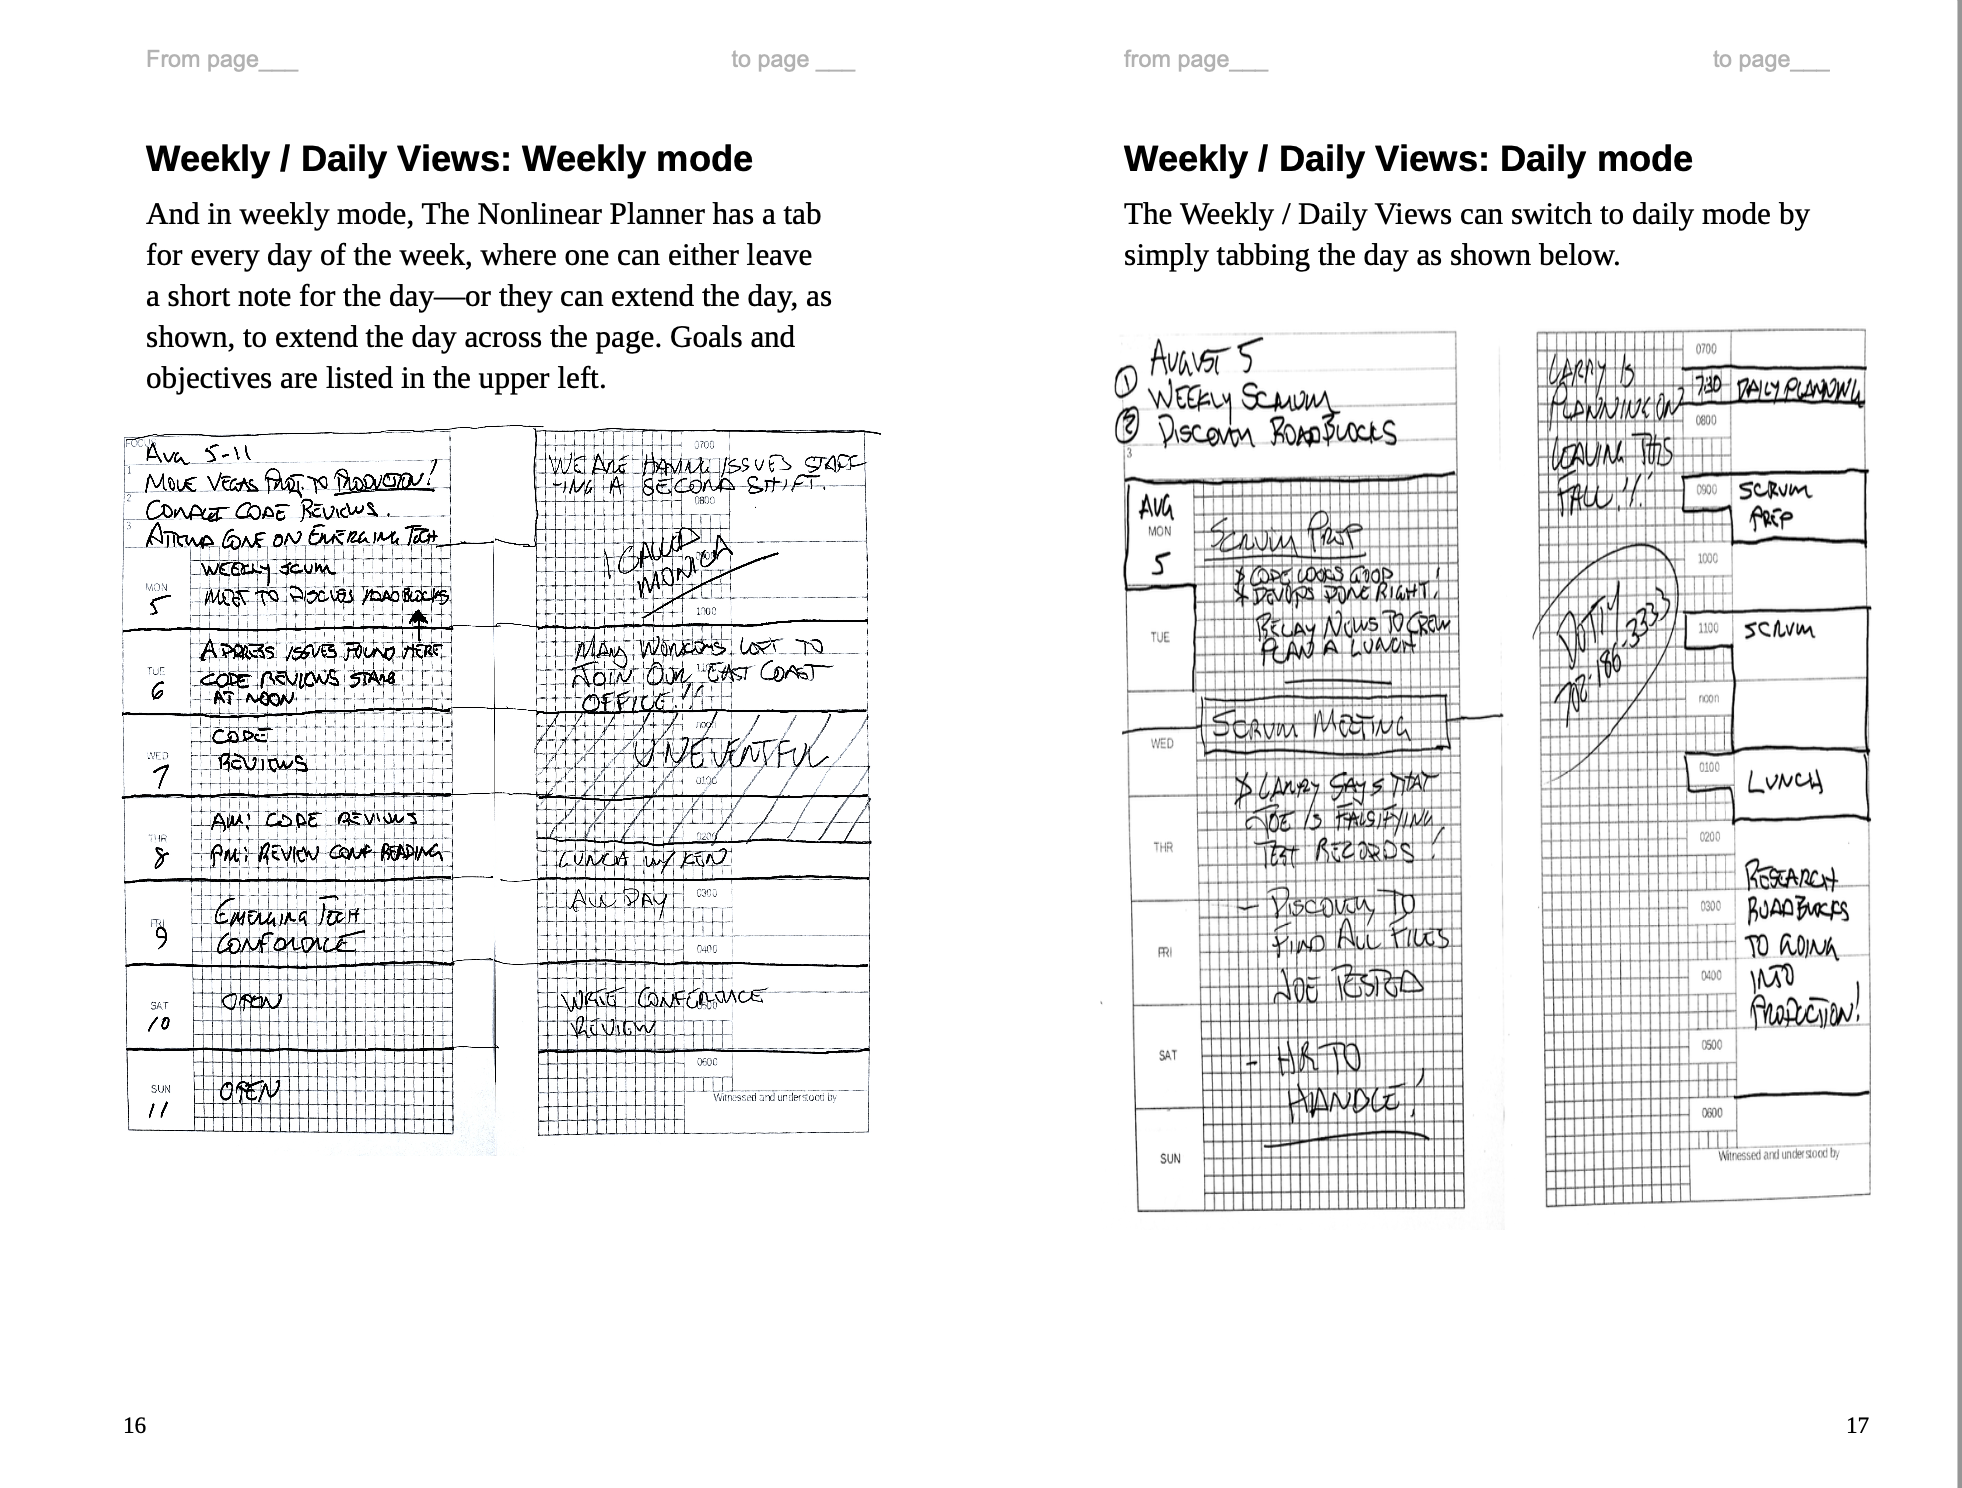 From page___ to page ___
Weekly / Daily Views: Weekly mode
And in weekly mode, The Nonlinear Planner has a tab
for every day of the week, where one can either leave
a short note for the day—or they can extend the day, as
shown, to extend the day across the page. Goals and
objectives are listed in the upper left.
AUG 5-11
1
MOVE VEGAS TO PRODUCTION!
2
CODE REVIEWS.
3
ATTEND CONF ON EMERGING TECH
WEEKLY SCUM
MON
5
MEET TO DISCUSS ROADBLOCKS
ADDRESS ISSUES FOUND HERE
TUE
6
CODE REVIEWS
AT NOON
CODE
WED
7
REVIEWS
AM: CODE REVIEWS
THR
8
PM: REVIEW CONF READING
FRI
9
EMERGING TECH
CONFERENCE
SAT
10
OPEN
SUN
11
OPEN
0700
WE ARE HAVING ISSUES STAFF-
ING A SECOND SHIFT.
0800
I CALLED
MONICA
1000
MANY WORKERS LEFT TO
JOIN OUR EAST COAST
OFFICE!!
UNEVENTFUL
0100
0200
LUNCH W/ KEN
ALL DAY
0300
0400
WRITE CONFERENCE
REVIEW
0600
Witnessed and understood by
16
from page___ to page___
Weekly / Daily Views: Daily mode
The Weekly / Daily Views can switch to daily mode by
simply tabbing the day as shown below.
AUGUST 5
1 WEEKLY SCRUM
2 DISCOVER ROADBLOCKS
3
AUG
MON
5
SCRUM PREP
CODE LOOKS GOOD!
DEVOPS DONE RIGHT!
RELAY NEWS TO CREW
PLAN A LUNCH
TUE
SCRUM MEETING
WED
LARRY SAYS THAT
JOE IS FALSIFYING
TEST RECORDS!
THR
- DISCOVERY TO
FIND ALL FILES
JOE TESTED
FRI
SAT
- HR TO
HANDLE!
SUN
LARRY IS
PLANNING ON
LEAVING THIS
FALL!!
DOTTY
702-186-3333
0700
7:30 DAILY PLANNING
0800
0900 SCRUM
PREP
1000
1100 SCRUM
noon
0100 LUNCH
0200
RESEARCH
0300 ROADBLOCKS
TO GOING
0400 INTO
PRODUCTION!
0500
0600
Witnessed and understood by
17